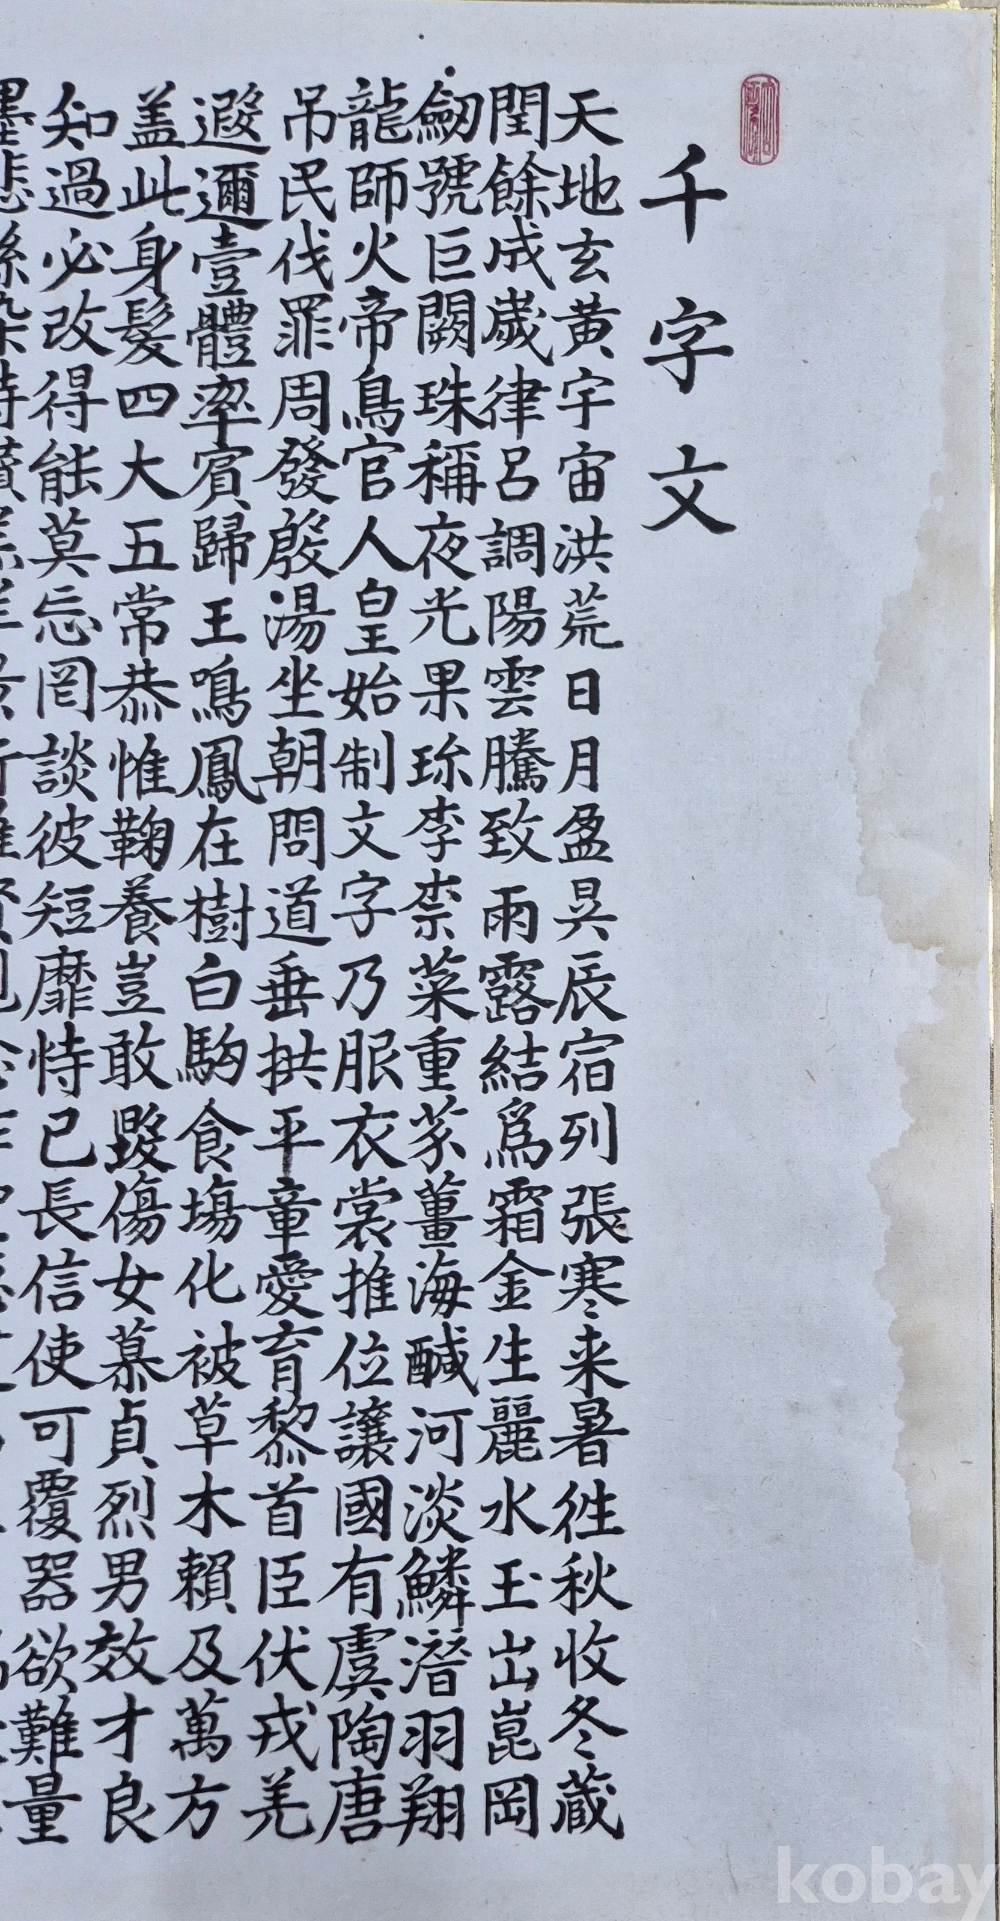 千字文
天地玄黃宇宙洪荒日月盈昃辰宿列張寒来暑徃秋收冬蔵
閏餘成歲律呂調陽雲騰致雨露結爲霜金生麗水玉出崑岡
劒號巨闕珠稱夜光果珎李柰菜重芥薑海醎河淡鱗潛羽翔
龍師火帝鳥官人皇始制文字乃服衣裳推位讓國有虞陶唐
吊民伐罪周發殷湯坐朝問道垂拱平章愛育黎首臣伏戎羌
遐邇壹體率賓歸王鳴鳳在樹白駒食場化被草木賴及萬方
盖此身髮四大五常恭惟鞠養豈敢毀傷女慕貞烈男效才良
知過必改得能莫忘罔談彼短靡恃己長信使可覆器欲難量
kobay